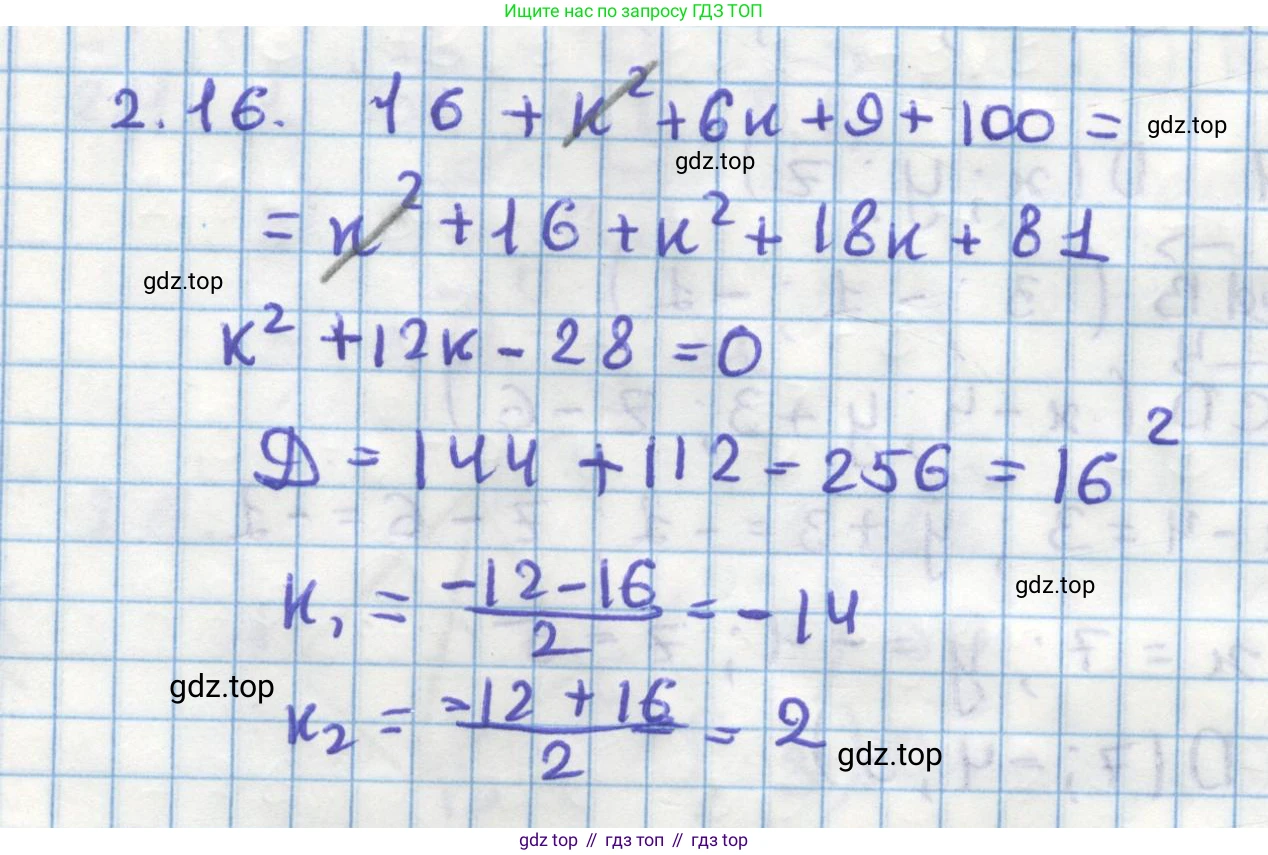 Ищите нас по запросу ГДЗ ТОП
2.16. 16 + к² + 6к + 9 + 100 = gdz.top
gdz.top
= к² + 16 + к² + 18к + 81
gdz.top
к² + 12к - 28 = 0
D = 144 + 112 = 256 = 16²
к₁ = (-12 - 16)/2 = -14
gdz.top
gdz.top
к₂ = (-12 + 16)/2 = 2
gdz.top
gdz.top // гдз топ // гдз top